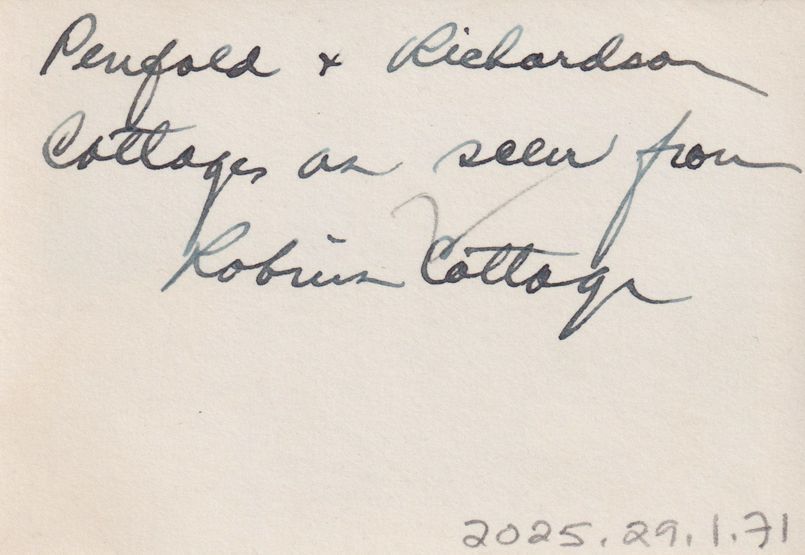 Penfold + Richardson
Cottages as seen from
Robins Cottage
2025.29.1.71